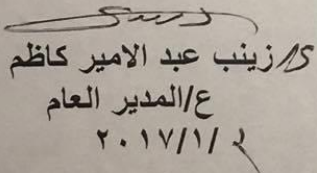 زينب عبد الامير كاظم
ع/المدير العام
٢٠١٧/١/٢